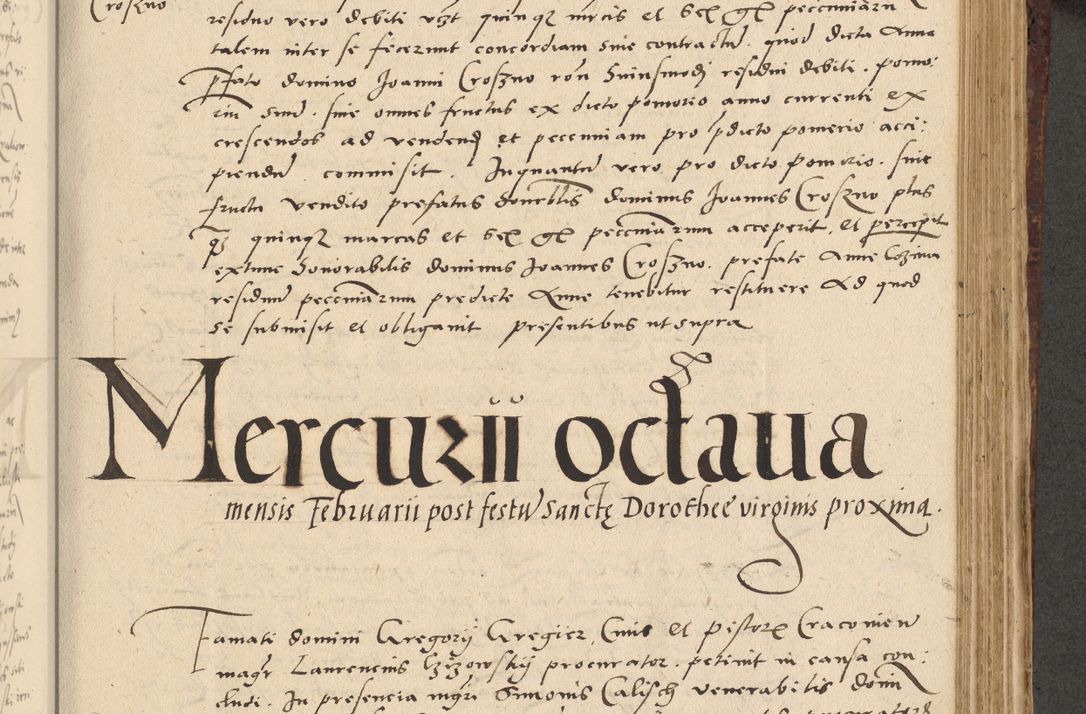 Croszno
residuo vero debiti vzt quinqz mrcis et sex gr pecuniaru
talem inter se fecerunt concordiam sive contractu. quod dicta Anna
pfato domino Joanni Croszno residui debiti. pomo:
riu suu. sive omnes fructus ex dicto pomorio anno currenti ex
crescendos ad vendend et pecuniam pro pdicto pomerio acci:
piendu commisit. Inquantu vero pro dicto pomorio. sive
fructu vendito prefatus honorblis dominus Joannes Croszno plus
qz quinqz marcas et sex gr pecuniarum acceperit, et percepit
extunc honorabilis dominus Joannes Croszno. prefate Anne
residuu pecuniarum predicte Anne tenebitur restituere Ad quod
se submisit et obligavit presentibus ut supra
Mercurii octava
mensis Februarii post festu Sancte Dorothee virginis proxima.
Famati domini Gregorij Gregier Civis et pistor Cracovien
magr Laurencius procurator. petivit in causa con:
cludi. In presencia mgri Simonis Calisch venerabilis domi